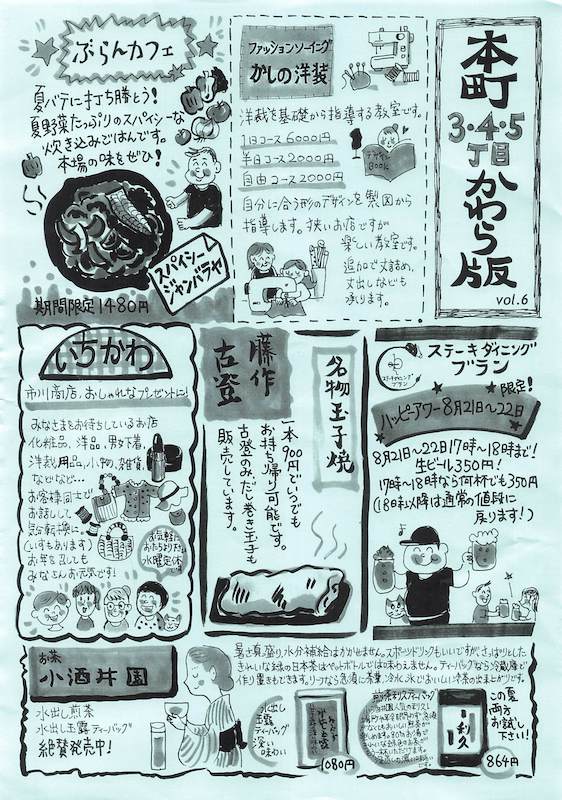 本町
3・4・5
丁目
かわら版
vol.6
ファッションソーイング
かしの洋装
洋裁を基礎から指導する教室です。
1日コース6000円
半日コース2000円
自由コース2000円
自分に合う形のデザインを製図から
指導します。狭いお店ですが
楽しい教室です。
追加で丈詰め、
丈出しなども
承ります。
デザイン
BOOK
ぶらんカフェ
夏バテに打ち勝とう!
夏野菜たっぷりのスパイシーな
炊き込みごはんです。
本場の味をぜひ!
スパイシー
ジャンバラヤ
期間限定1480円
ステーキダイニング
ブラン
限定!
ハッピーアワー8月21日~22日
8月21日~22日17時~18時まで!
生ビール350円!
17時~18時なら何杯でも350円
(18時以降は通常の値段に
戻ります!)
名物玉子焼
藤作
古登
一本900円でいつでも
お持ち帰り可能です。
古登のみだし巻き玉子も
販売しています。
いちかわ
市川商店、おしゃれなプレゼントに!
みなさまをお待ちしているお店
化粧品、洋品、男女下着、
洋裁用品、小物、雑貨、
などなど…
お客様同士で
お話しして
気分転換に。
(いすもあります)
お年を召しても
みなさんお元気です!
お気軽に
おたちより下さい
水曜定休
お茶
小酒井園
水出し煎茶
水出し玉露ティーバッグ
絶賛発売中!
暑さ真っ盛り、水分補給はかかせません。スポーツドリンクもいいですが、さっぱりとした
きれいな緑の日本茶はペットボトルでは味わえません。ティーバッグなら冷蔵庫で
作り置きもできます。リーフなら急須に茶葉、冷水、氷でおいしい冷茶の出来上がりです。
水出し
玉露
ティーバッグ
深い
味わい
1080円
利久
この夏
両方
お試し
下さい!
864円